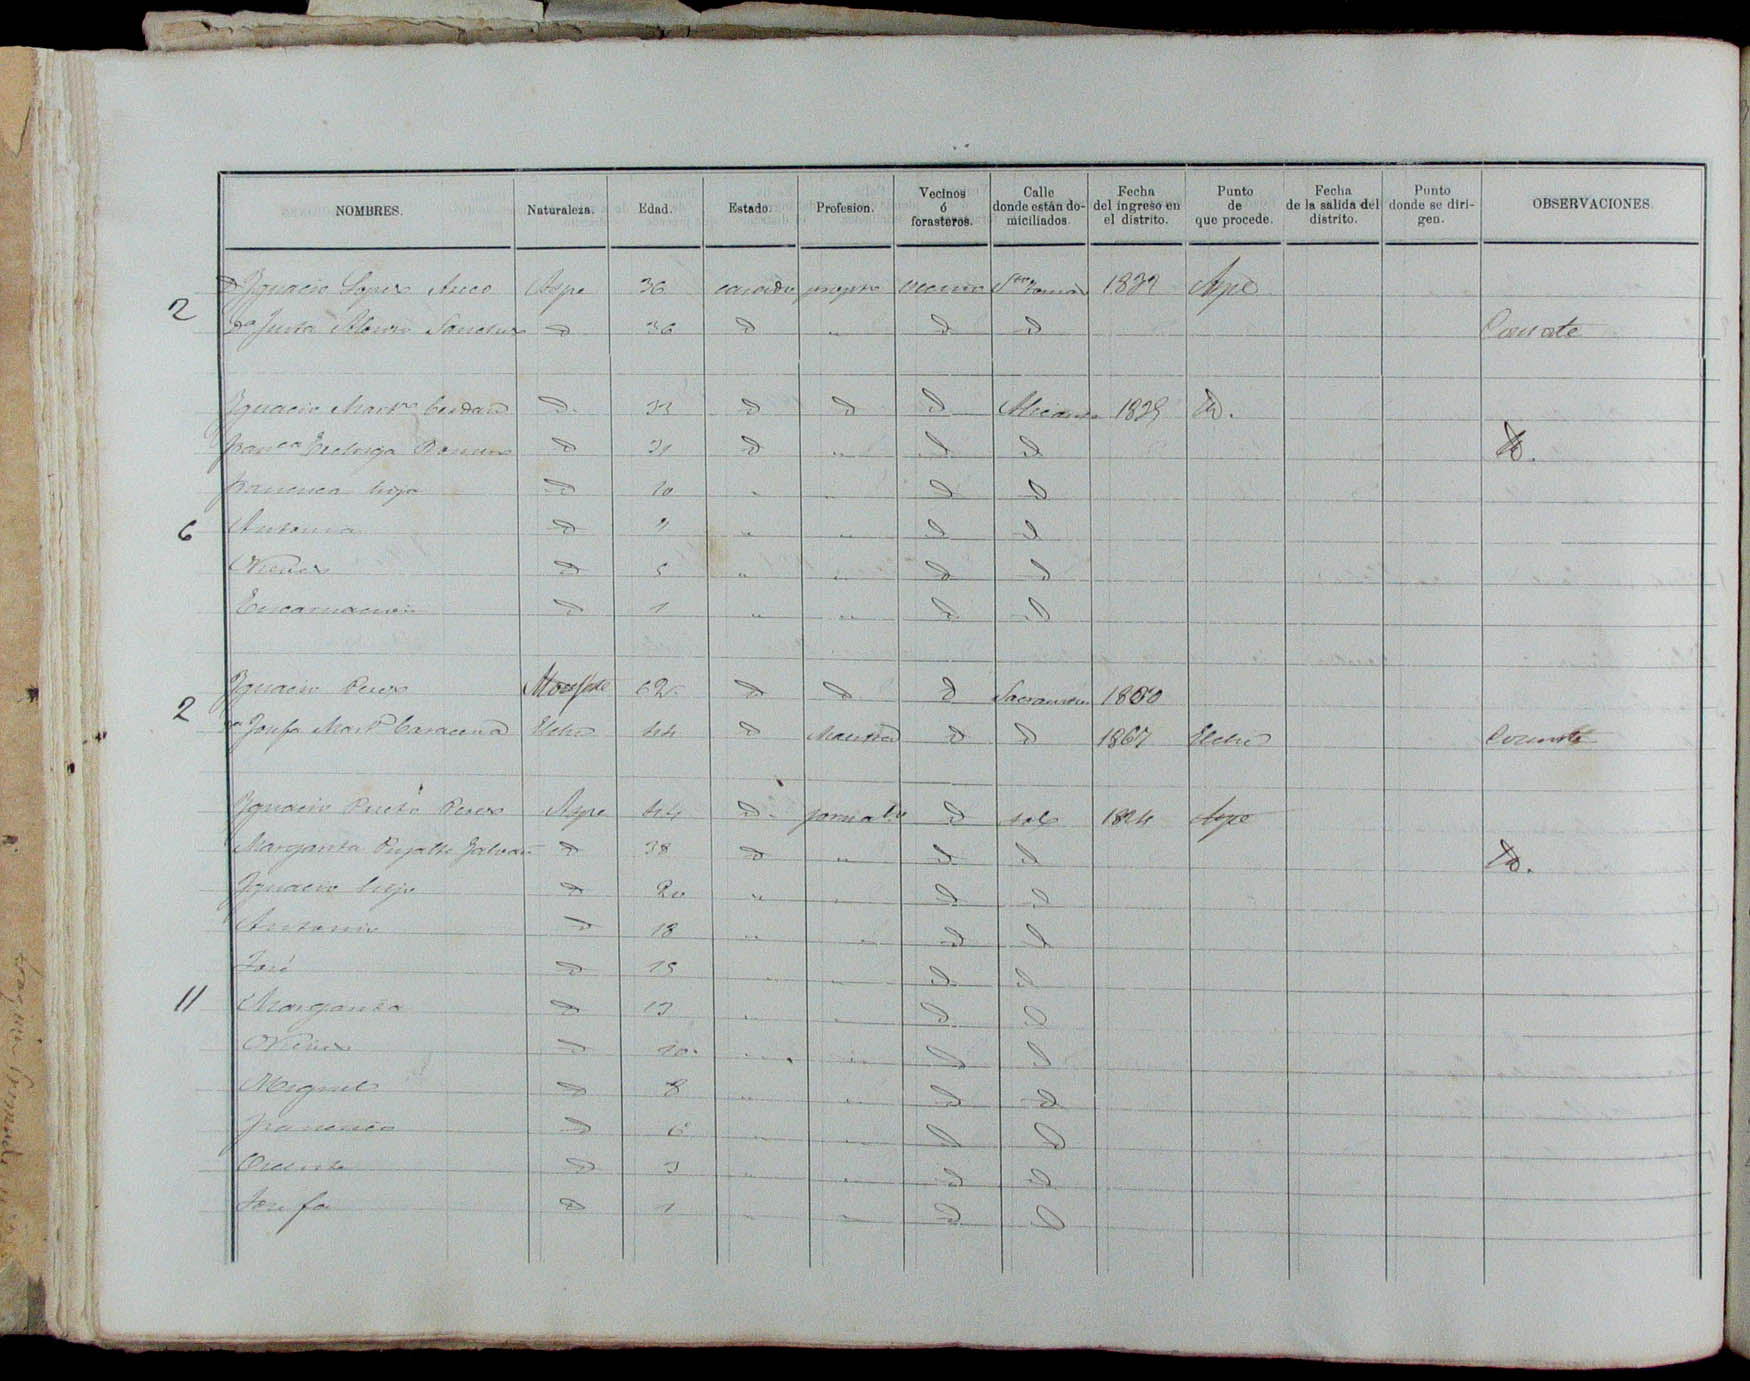 NOMBRES. Naturaleza. Edad. Estado. Profesion. Vecinos ó forasteros. Calle donde están domiciliados. Fecha del ingreso en el distrito. Punto de que procede. Fecha de la salida del distrito. Punto donde se dirigen. OBSERVACIONES.
Ignacio Lopez Aspe 36 casado vecino 1832 Aspe
2
Da Justa Alonso Sanchez D 36 D " D D Consorte
Ignacio Martz Cerdan D. D D D 1839 D.
Franca Romero D 31 D " D D D.
Francisca hija D 10 " " D D
6 Antonia D " " D D
Nieves D 5 " " D D
Encarnacion D 1 " " D D
Ignacio Perez Monforte 62 D D D Sacramento 1800
2
Da Josefa Martz Caracena Elche 44 D D D 1867 Elche Consorte
Ignacio Prieto Perez Aspe 44 D. D sol 1824 Aspe
Margarita Pujalte Galvañ D 38 D " D D D.
Ignacio hijo D 20 " " D D
Antonio D 18 " " D D
José D 15 " " D D
11 Margarita D 13 " " D D
Nieves D 10. " " D D
Miguel D 8 " " D D
Francisco D 6 " " D D
Vicente D 3 " " D D
Josefa D 1 " " D D